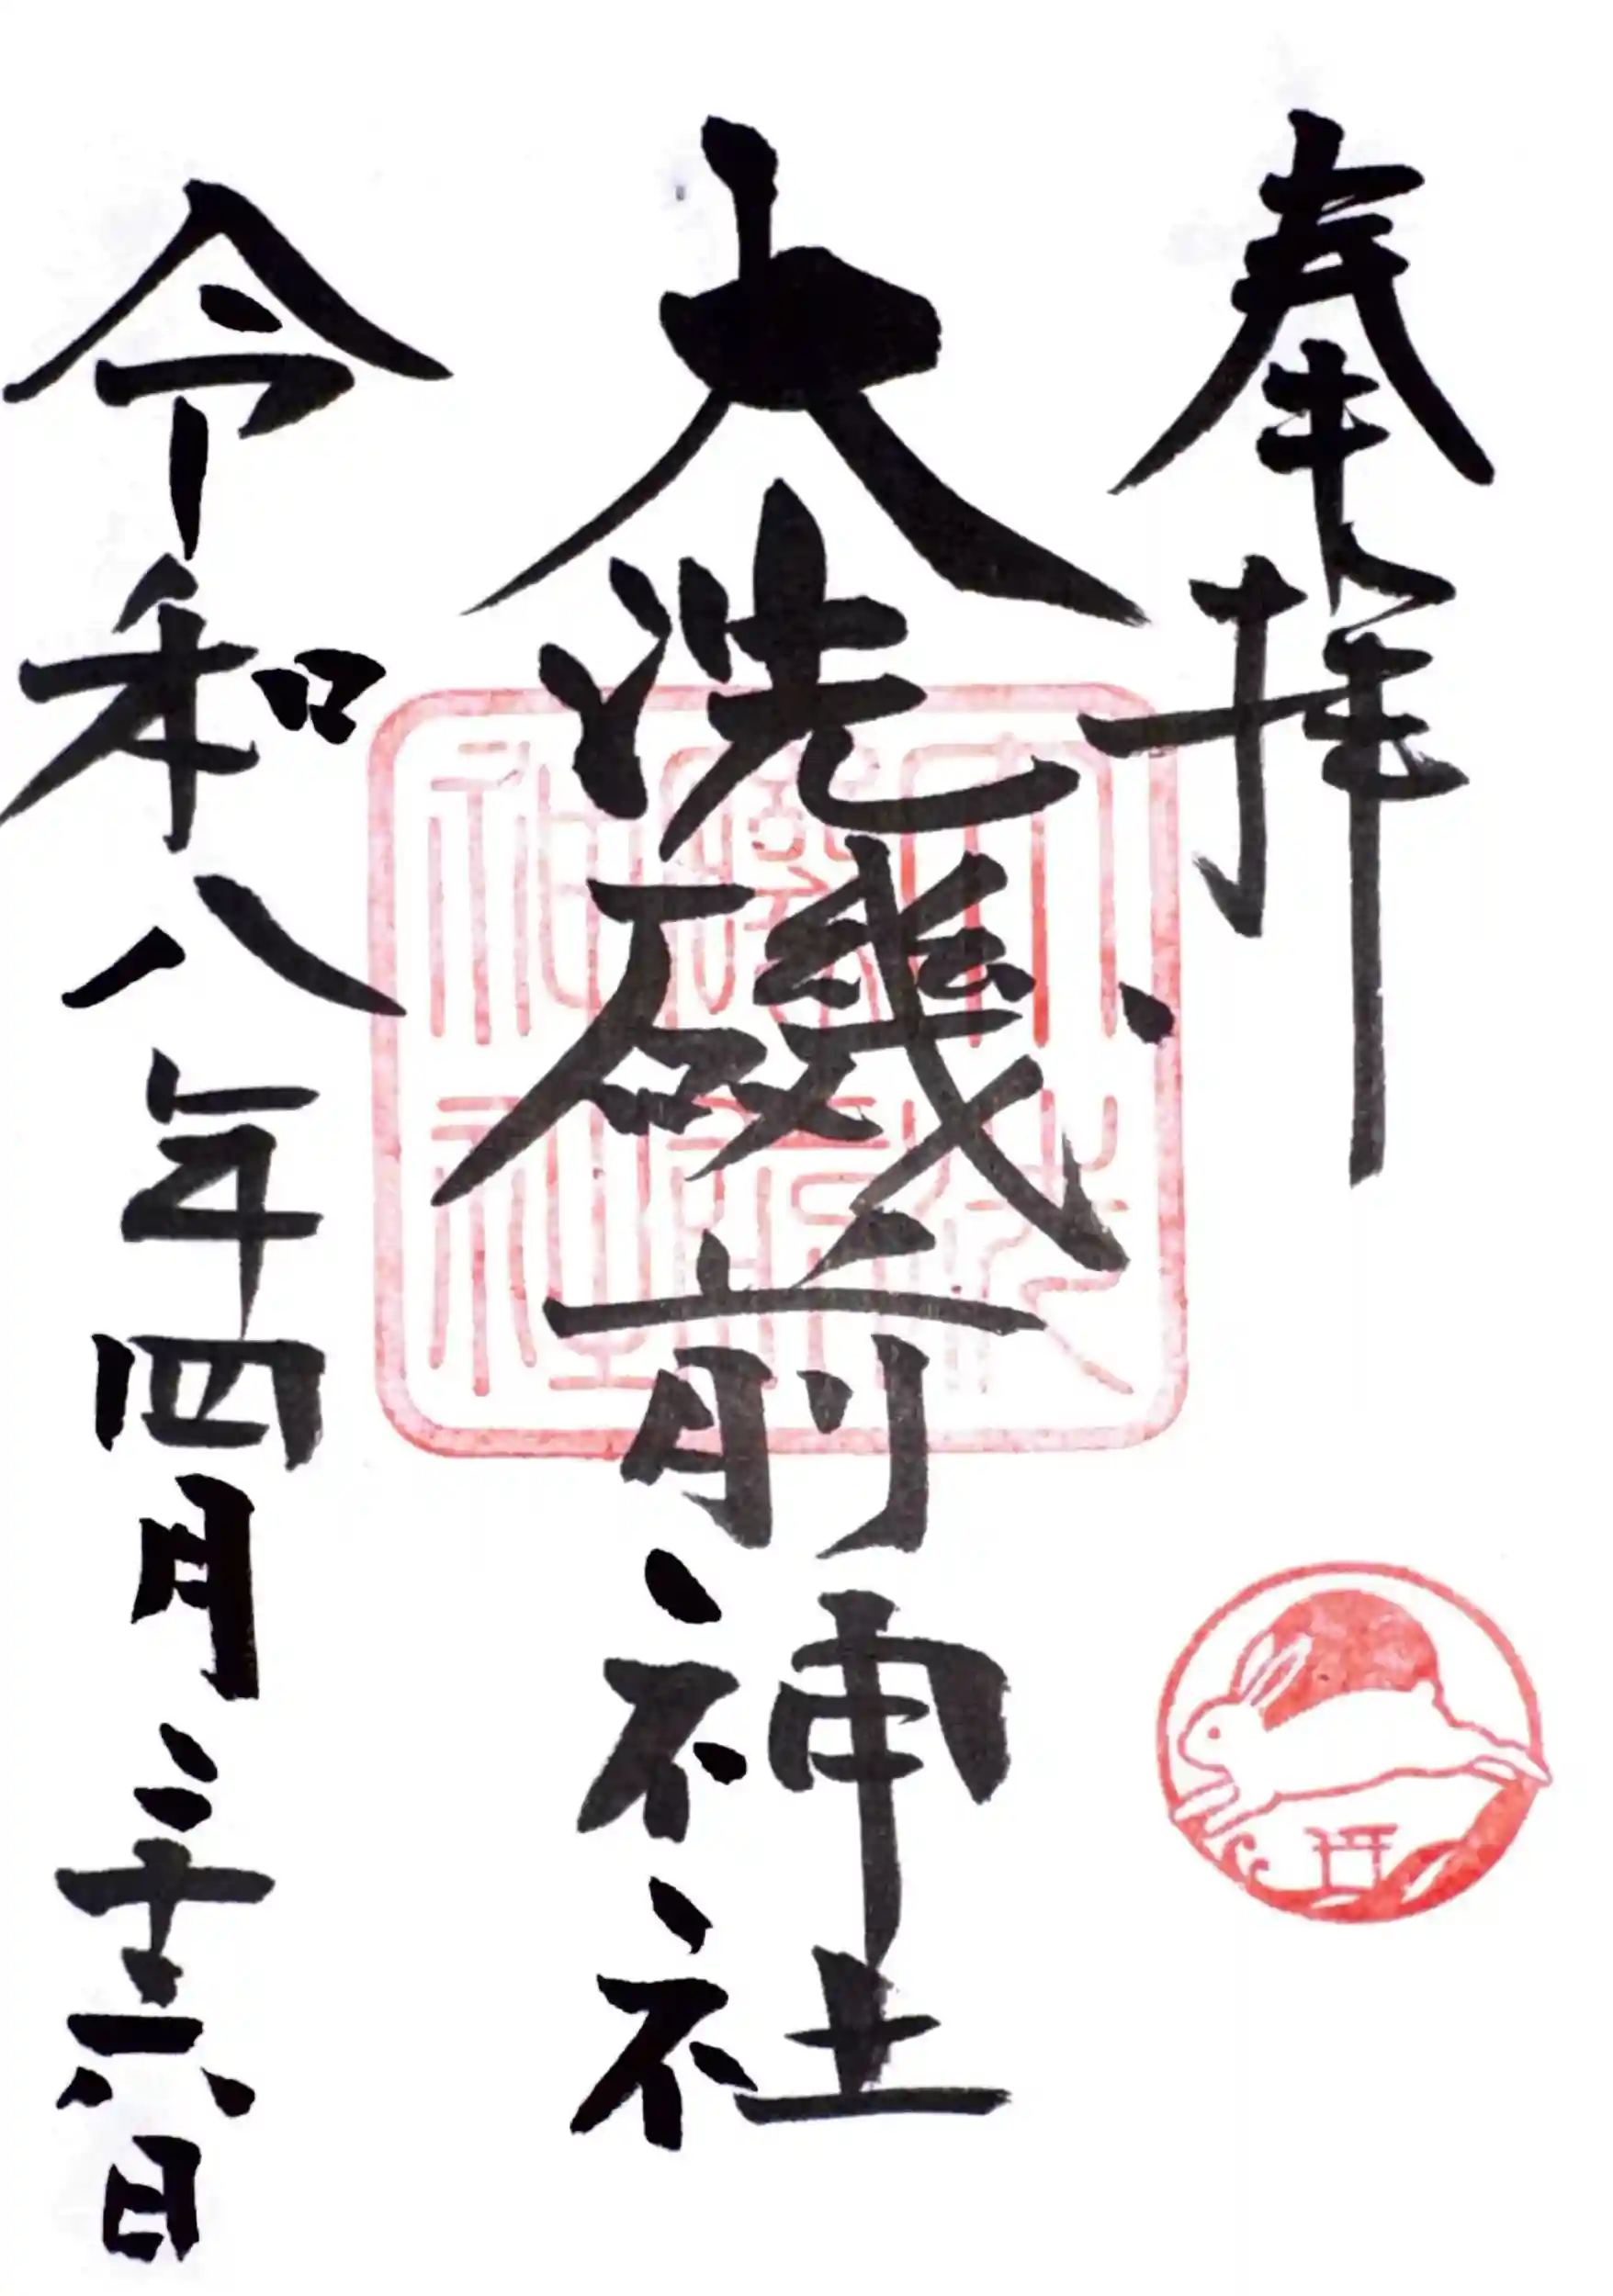 奉拝
大洗磯前神社
令和八年四月二十六日